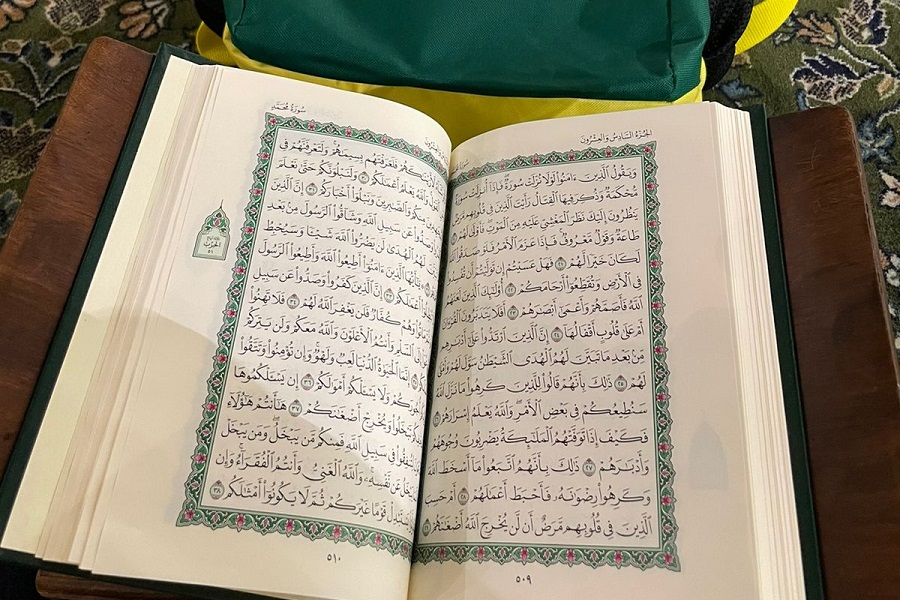 الجُزْءُ السَّادِسُ وَالعِشْرُونَ
وَيَقُولُ ٱلَّذِينَ ءَامَنُواْ لَوْلَا نُزِّلَتْ سُورَةٌ فَإِذَآ أُنزِلَتْ
مُّحْكَمَةٌ وَذُكِرَ فِيهَا ٱلْقِتَالُ رَأَيْتَ ٱلَّذِينَ فِي قُلُوبِهِم
يَنظُرُونَ إِلَيْكَ نَظَرَ ٱلْمَغْشِيِّ عَلَيْهِ مِنَ ٱلْمَوْتِ فَأَوْلَىٰ لَهُمْ
طَاعَةٌ وَقَوْلٌ مَّعْرُوفٌ فَإِذَا عَزَمَ ٱلْأَمْرُ فَلَوْ صَدَقُواْ
لَكَانَ خَيْرًا لَّهُمْ ٢١ فَهَلْ عَسَيْتُمْ إِن تَوَلَّيْتُمْ أَن تُفْسِدُواْ
فِي ٱلْأَرْضِ وَتُقَطِّعُوٓاْ أَرْحَامَكُمْ ٢٢ أُوْلَٰٓئِكَ ٱلَّذِينَ لَعَنَهُمُ
ٱللَّهُ فَأَصَمَّهُمْ وَأَعْمَىٰٓ أَبْصَٰرَهُمْ ٢٣ أَفَلَا يَتَدَبَّرُونَ ٱلْقُرْءَانَ
أَمْ عَلَىٰ قُلُوبٍ أَقْفَالُهَآ ٢٤ إِنَّ ٱلَّذِينَ ٱرْتَدُّواْ عَلَىٰٓ أَدْبَٰرِهِم
مِّنۢ بَعْدِ مَا تَبَيَّنَ لَهُمُ ٱلْهُدَى ٱلشَّيْطَٰنُ سَوَّلَ لَهُمْ وَأَمْلَىٰ
لَهُمْ ٢٥ ذَٰلِكَ بِأَنَّهُمْ قَالُواْ لِلَّذِينَ كَرِهُواْ مَا نَزَّلَ ٱللَّهُ
سَنُطِيعُكُمْ فِي بَعْضِ ٱلْأَمْرِ وَٱللَّهُ يَعْلَمُ إِسْرَارَهُمْ ٢٦
فَكَيْفَ إِذَا تَوَفَّتْهُمُ ٱلْمَلَٰٓئِكَةُ يَضْرِبُونَ وُجُوهَهُمْ
وَأَدْبَٰرَهُمْ ٢٧ ذَٰلِكَ بِأَنَّهُمُ ٱتَّبَعُواْ مَآ أَسْخَطَ ٱللَّهَ
وَكَرِهُواْ رِضْوَٰنَهُۥ فَأَحْبَطَ أَعْمَٰلَهُمْ ٢٨ أَمْ حَسِبَ
ٱلَّذِينَ فِي قُلُوبِهِم مَّرَضٌ أَن لَّن يُخْرِجَ ٱللَّهُ أَضْغَٰنَهُمْ ٢٩
٥٠٩
سُورَةُ مُحَمَّدٍ
فَلَعَرَفْتَهُم بِسِيمَٰهُمْ وَلَتَعْرِفَنَّهُمْ فِي
يَعْلَمُ أَعْمَٰلَكُمْ ٣٠ وَلَنَبْلُوَنَّكُمْ حَتَّىٰ نَعْلَمَ
مِنكُمْ وَٱلصَّٰبِرِينَ وَنَبْلُوَاْ أَخْبَارَكُمْ ٣١ إِنَّ ٱلَّذِينَ
وَصَدُّواْ عَن سَبِيلِ ٱللَّهِ وَشَآقُّواْ ٱلرَّسُولَ مِنۢ بَعْدِ
لَهُمُ ٱلْهُدَىٰ لَن يَضُرُّواْ ٱللَّهَ شَيْـًٔا وَسَيُحْبِطُ
يَٰٓأَيُّهَا ٱلَّذِينَ ءَامَنُوٓاْ أَطِيعُواْ ٱللَّهَ وَأَطِيعُواْ ٱلرَّسُولَ
أَعْمَٰلَكُمْ ٣٣ إِنَّ ٱلَّذِينَ كَفَرُواْ وَصَدُّواْ عَن سَبِيلِ
وَهُمْ كُفَّارٌ فَلَن يَغْفِرَ ٱللَّهُ لَهُمْ ٣٤ فَلَا تَهِنُواْ
إِلَى ٱلسَّلْمِ وَأَنتُمُ ٱلْأَعْلَوْنَ وَٱللَّهُ مَعَكُمْ وَلَن يَتِرَكُمْ
إِنَّمَا ٱلْحَيَوٰةُ ٱلدُّنْيَا لَعِبٌ وَلَهْوٌ وَإِن تُؤْمِنُواْ وَتَتَّقُواْ
أُجُورَكُمْ وَلَا يَسْـَٔلْكُمْ أَمْوَٰلَكُمْ ٣٦ إِن يَسْـَٔلْكُمُوهَا
تَبْخَلُواْ وَيُخْرِجْ أَضْغَٰنَكُمْ ٣٧ هَٰٓأَنتُمْ هَٰٓؤُلَآءِ
لِتُنفِقُواْ فِي سَبِيلِ ٱللَّهِ فَمِنكُم مَّن يَبْخَلُ وَمَن يَبْخَلْ
يَبْخَلُ عَن نَّفْسِهِۦ وَٱللَّهُ ٱلْغَنِيُّ وَأَنتُمُ ٱلْفُقَرَآءُ وَإِن
يَسْتَبْدِلْ قَوْمًا غَيْرَكُمْ ثُمَّ لَا يَكُونُوٓاْ أَمْثَٰلَكُم ٣٨
الحِزْب
٥١
٥١٠